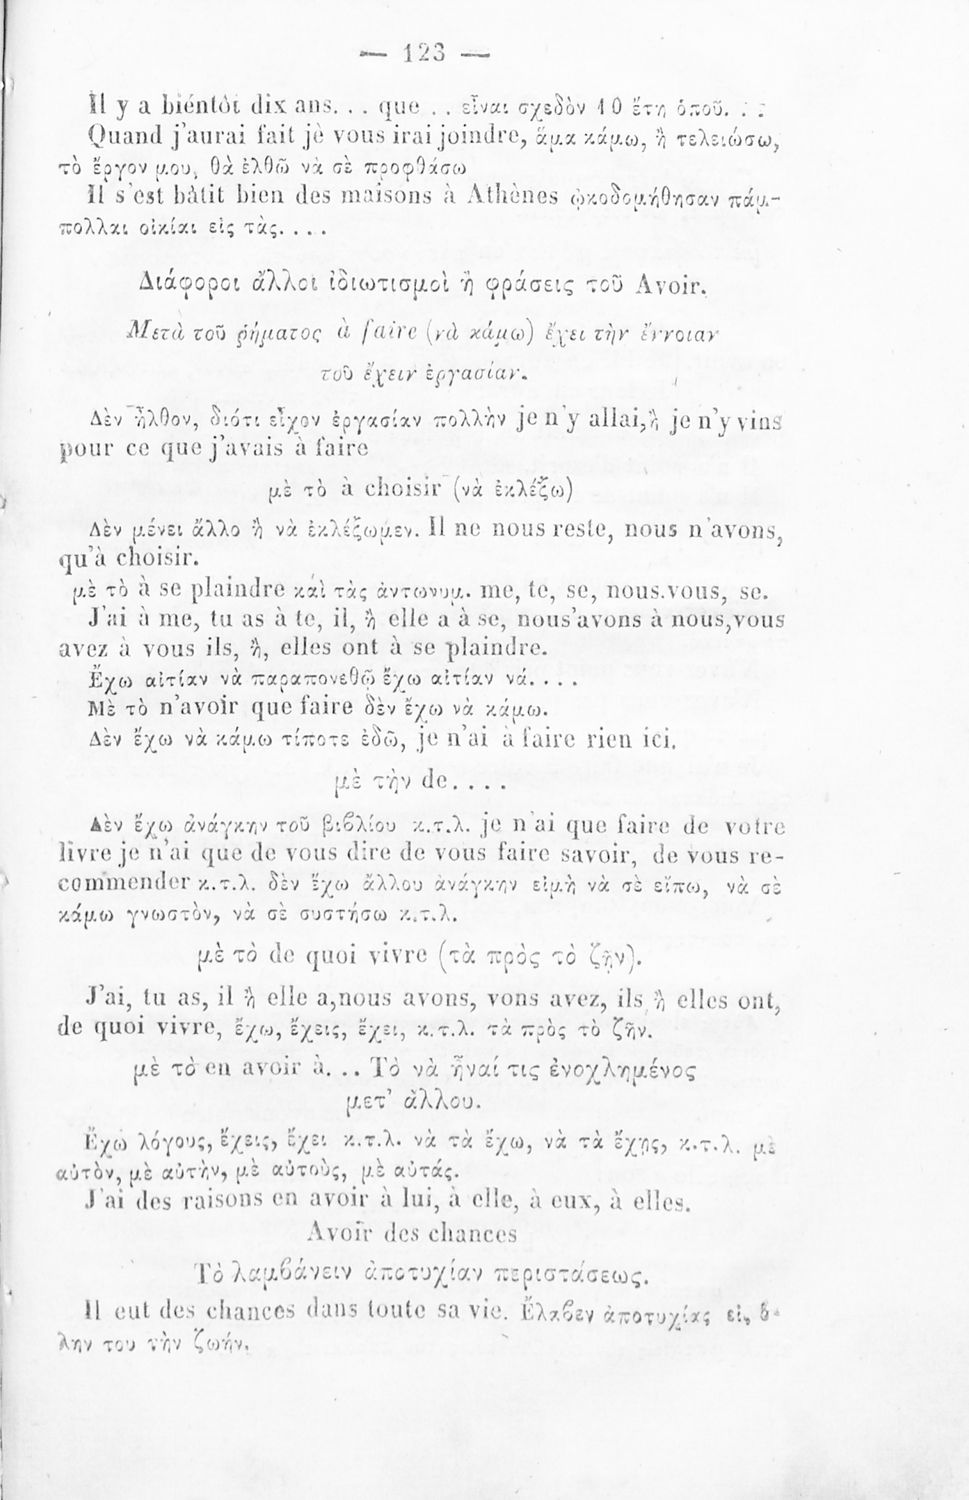 — 123 —
Il y a biéntôt dix ans. . . que . . εἶναι σχεδὸν 10 ἔτη ὁποῦ. . .
Quand j'aurai fait jè vous irai joindre, ἅμα κάμω, ἢ τελειώσω,
τὸ ἔργον μου, θὰ ἐλθῶ νὰ σὲ προφθάσω
Il s'est bâtit bien des maisons à Athènes ᾠκοδομήθησαν πάμ-
πολλαι οἰκίαι εἰς τὰς. . . .
Διάφοροι ἄλλοι ἰδιωτισμοὶ ἢ φράσεις τοῦ Avoir.
Μετὰ τοῦ ῥήματος à faire (νὰ κάμω) ἔχει τὴν ἔννοιαν
τοῦ ἔχειν ἐργασίαν.
Δὲν ἦλθον, διότι εἶχον ἐργασίαν πολλὴν je n'y allai, ἢ je n'y vins
pour ce que j'avais à faire
μὲ τὸ à choisir (νὰ ἐκλέξω)
Δὲν μένει ἄλλο ἢ νὰ ἐκλέξωμεν. Il ne nous reste, nous n'avons,
qu'à choisir.
μὲ τὸ à se plaindre καὶ τὰς ἀντωνυμ. me, te, se, nous.vous, se.
J'ai à me, tu as à te, il, ἢ elle a à se, nous'avons à nous,vous
avez à vous ils, ἢ, elles ont à se plaindre.
Ἔχω αἰτίαν νὰ παραπονεθῶ ἔχω αἰτίαν νά. . . .
Μὲ τὸ n'avoir que faire δὲν ἔχω νὰ κάμω.
Δὲν ἔχω νὰ κάμω τίποτε ἐδῶ, je n'ai à faire rien ici.
μὲ τὴν de. . . .
Δὲν ἔχω ἀνάγκην τοῦ βιβλίου κ.τ.λ. je n'ai que faire de votre
livre je n'ai que de vous dire de vous faire savoir, de vous re-
commender κ.τ.λ. δὲν ἔχω ἄλλου ἀνάγκην εἰμὴ νὰ σὲ εἴπω, νὰ σὲ
κάμω γνωστὸν, νὰ σὲ συστήσω κ.τ.λ.
μὲ τὸ de quoi vivre (τὰ πρὸς τὸ ζῆν).
J'ai, tu as, il ἢ elle a,nous avons, vons avez, ils ἢ elles ont,
de quoi vivre, ἔχω, ἔχεις, ἔχει, κ.τ.λ. τὰ πρὸς τὸ ζῆν.
μὲ τὸ en avoir à. .. Τὸ νὰ ἦναί τις ἐνοχλημένος
μετ' ἄλλου.
Ἔχω λόγους, ἔχεις, ἔχει κ.τ.λ. νὰ τὰ ἔχω, νὰ τὰ ἔχῃς, κ.τ.λ. μὲ
αὐτὸν, μὲ αὐτὴν, μὲ αὐτοὺς, μὲ αὐτάς.
J'ai des raisons en avoir à lui, à elle, à eux, à elles.
Avoir des chances
Τὸ λαμβάνειν ἀποτυχίαν περιστάσεως.
Il eut des chances dans toute sa vie. Ἔλαβεν ἀποτυχίας εἰς ὅ-
λην του τὴν ζωήν.